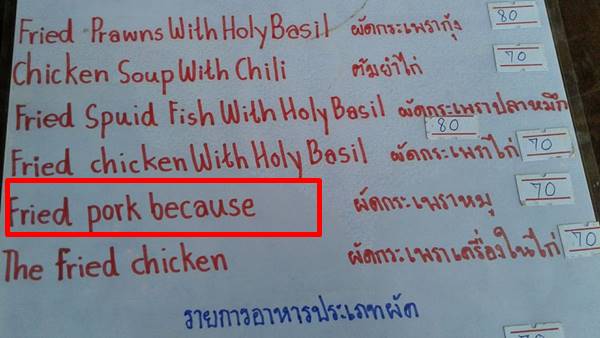 Fried Prawns With Holy Basil ผัดกระเพรากุ้ง 80
Chicken Soup With Chili ต้มยำไก่ 70
Fried Spuid Fish With Holy Basil ผัดกระเพราปลาหมึก
80
Fried chicken With Holy Basil ผัดกระเพราไก่ 70
Fried pork because ผัดกระเพราหมู 70
The fried chicken ผัดกระเพราเครื่องในไก่ 70
รายการอาหารประเภทผัด